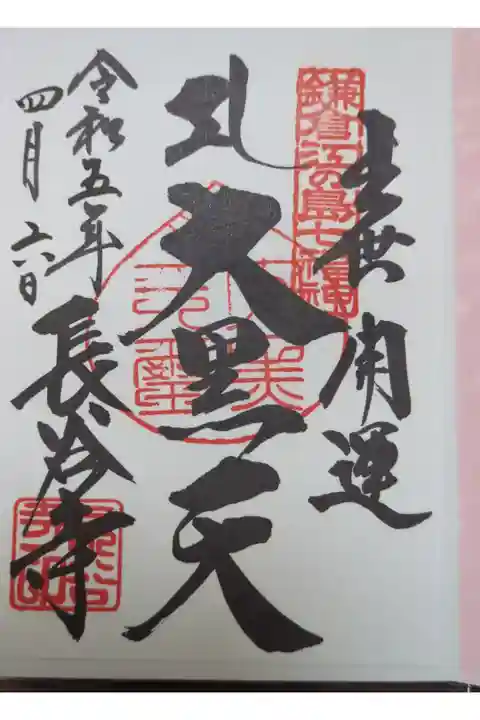 出世開運
鎌倉江の島七福神
大黒天
長谷寺
令和五年
四月六日